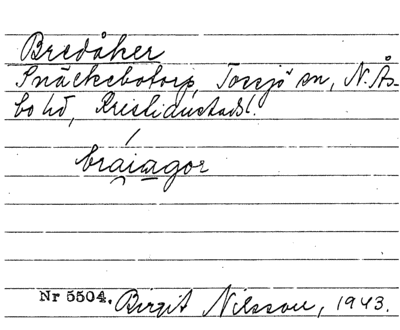 Bredåker
Snäckebotorp, Tossjö sn, N. Ås-
bo hd, Kristianstads l.
braiagor
Nr 5504. Birgit Nilsson, 1943.